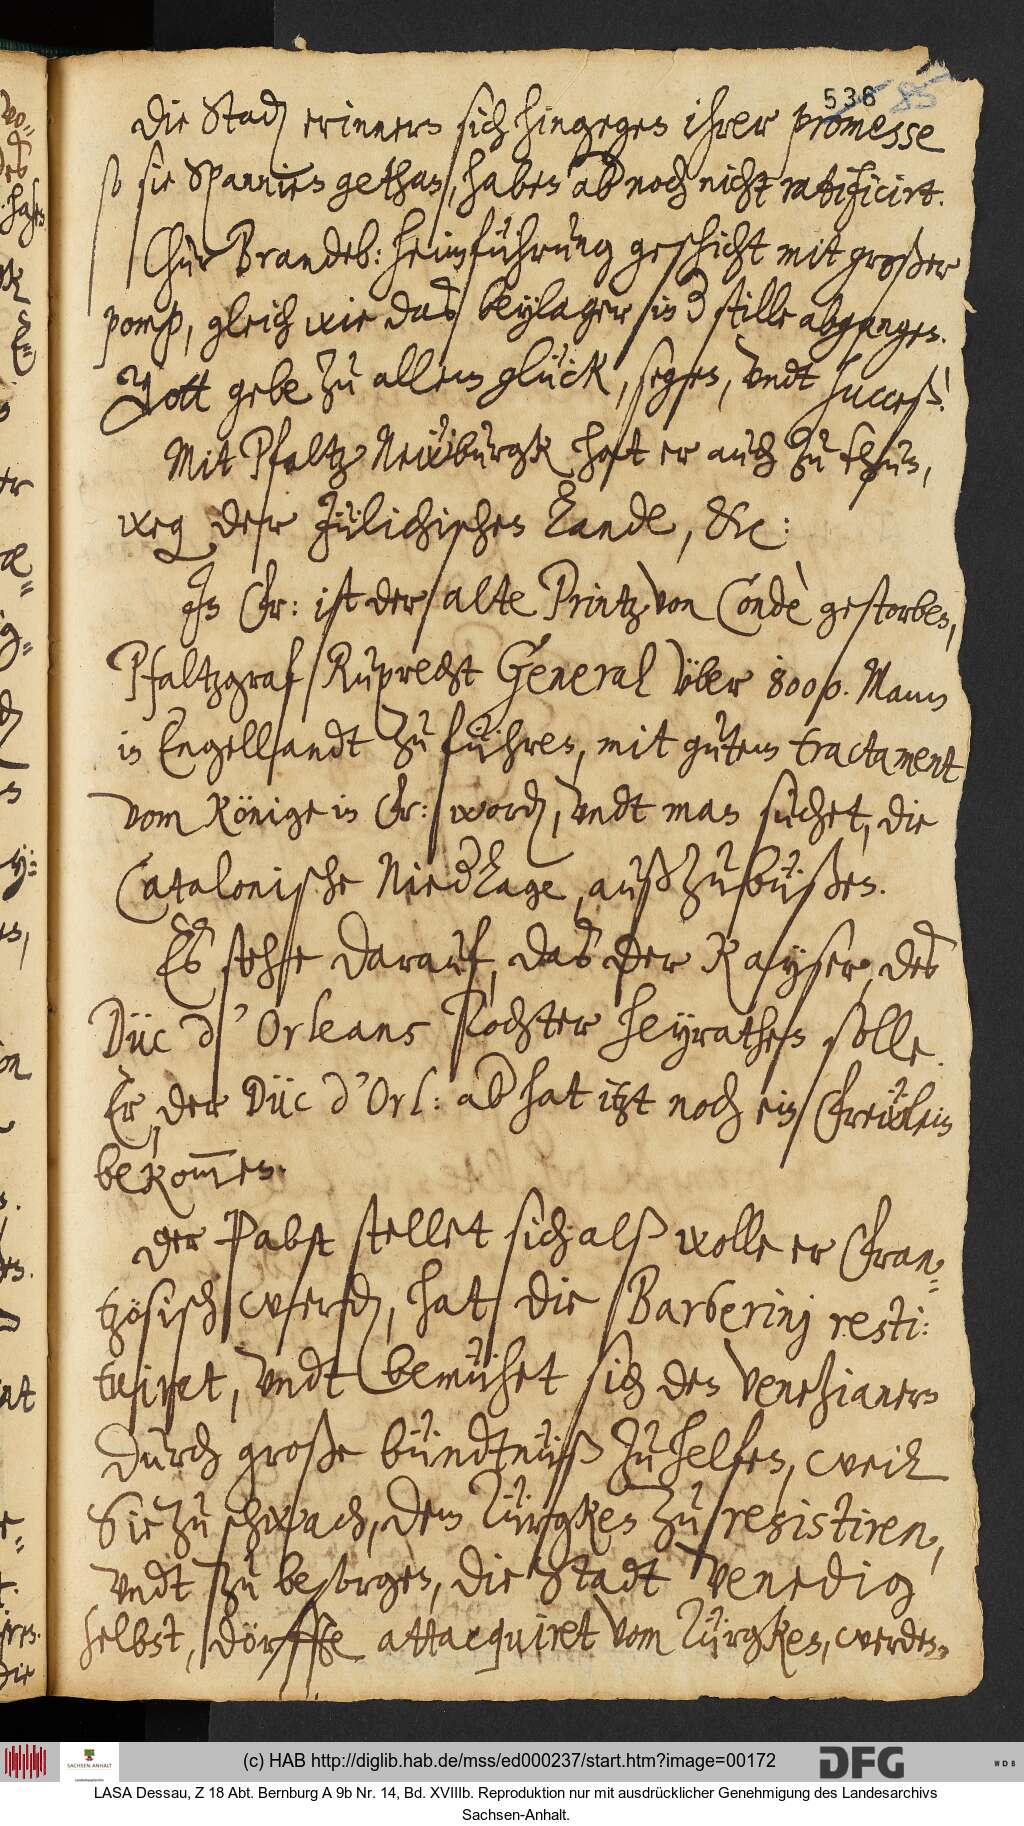 536 85
Die Stad, erinnern sich hingegen ihrer promesse
so sie Spannien gethan, haben ab noch nicht ratificirt.
Chur Brandeb: heimführung geschicht mit großer
pomp, gleich wie das beylager in d stille abgangen.
Gott gebe zu allem glück, segen, undt success!
Mit Pfaltz Neüburgk hat er auch zu thun,
weg der Jülichischen Lande, &c:
In Fr: ist der alte Printz von Condè gestorben,
Pfaltzgraf Ruprecht General über 8000. Mann
in Engellandt zu führen, mit gutem tractament
vom Könige in Fr: word, undt man suchet, die
Catalonische Niedlage, außzubüßen.
Es stehe darauf, das der Kayser, des
Düc d'Orleans Tochter heyrathen solle.
Er, der Düc d'Orl: ab hat itzt noch ein Freülein
bekom̅en.
Der Pabst stellet sich alß wolle er Fran-
tzösisch werd, hat die Barberinj resti:
tuiret, undt bemühet sich den Venetzianern
durch große bündtnüß zu helfen, weil
Sie zu schwach, dem Türgken zu resistiren,
undt zu besorgen, die Stadt Venedig
selbst, dörffe attacquiret vom Türgken, werden.
(c) HAB http://diglib.hab.de/mss/ed000237/start.htm?image=00172
SACHSEN-ANHALT
DFG
WDB
LASA Dessau, Z 18 Abt. Bernburg A 9b Nr. 14, Bd. XVIIIb. Reproduktion nur mit ausdrücklicher Genehmigung des Landesarchivs
Sachsen-Anhalt.